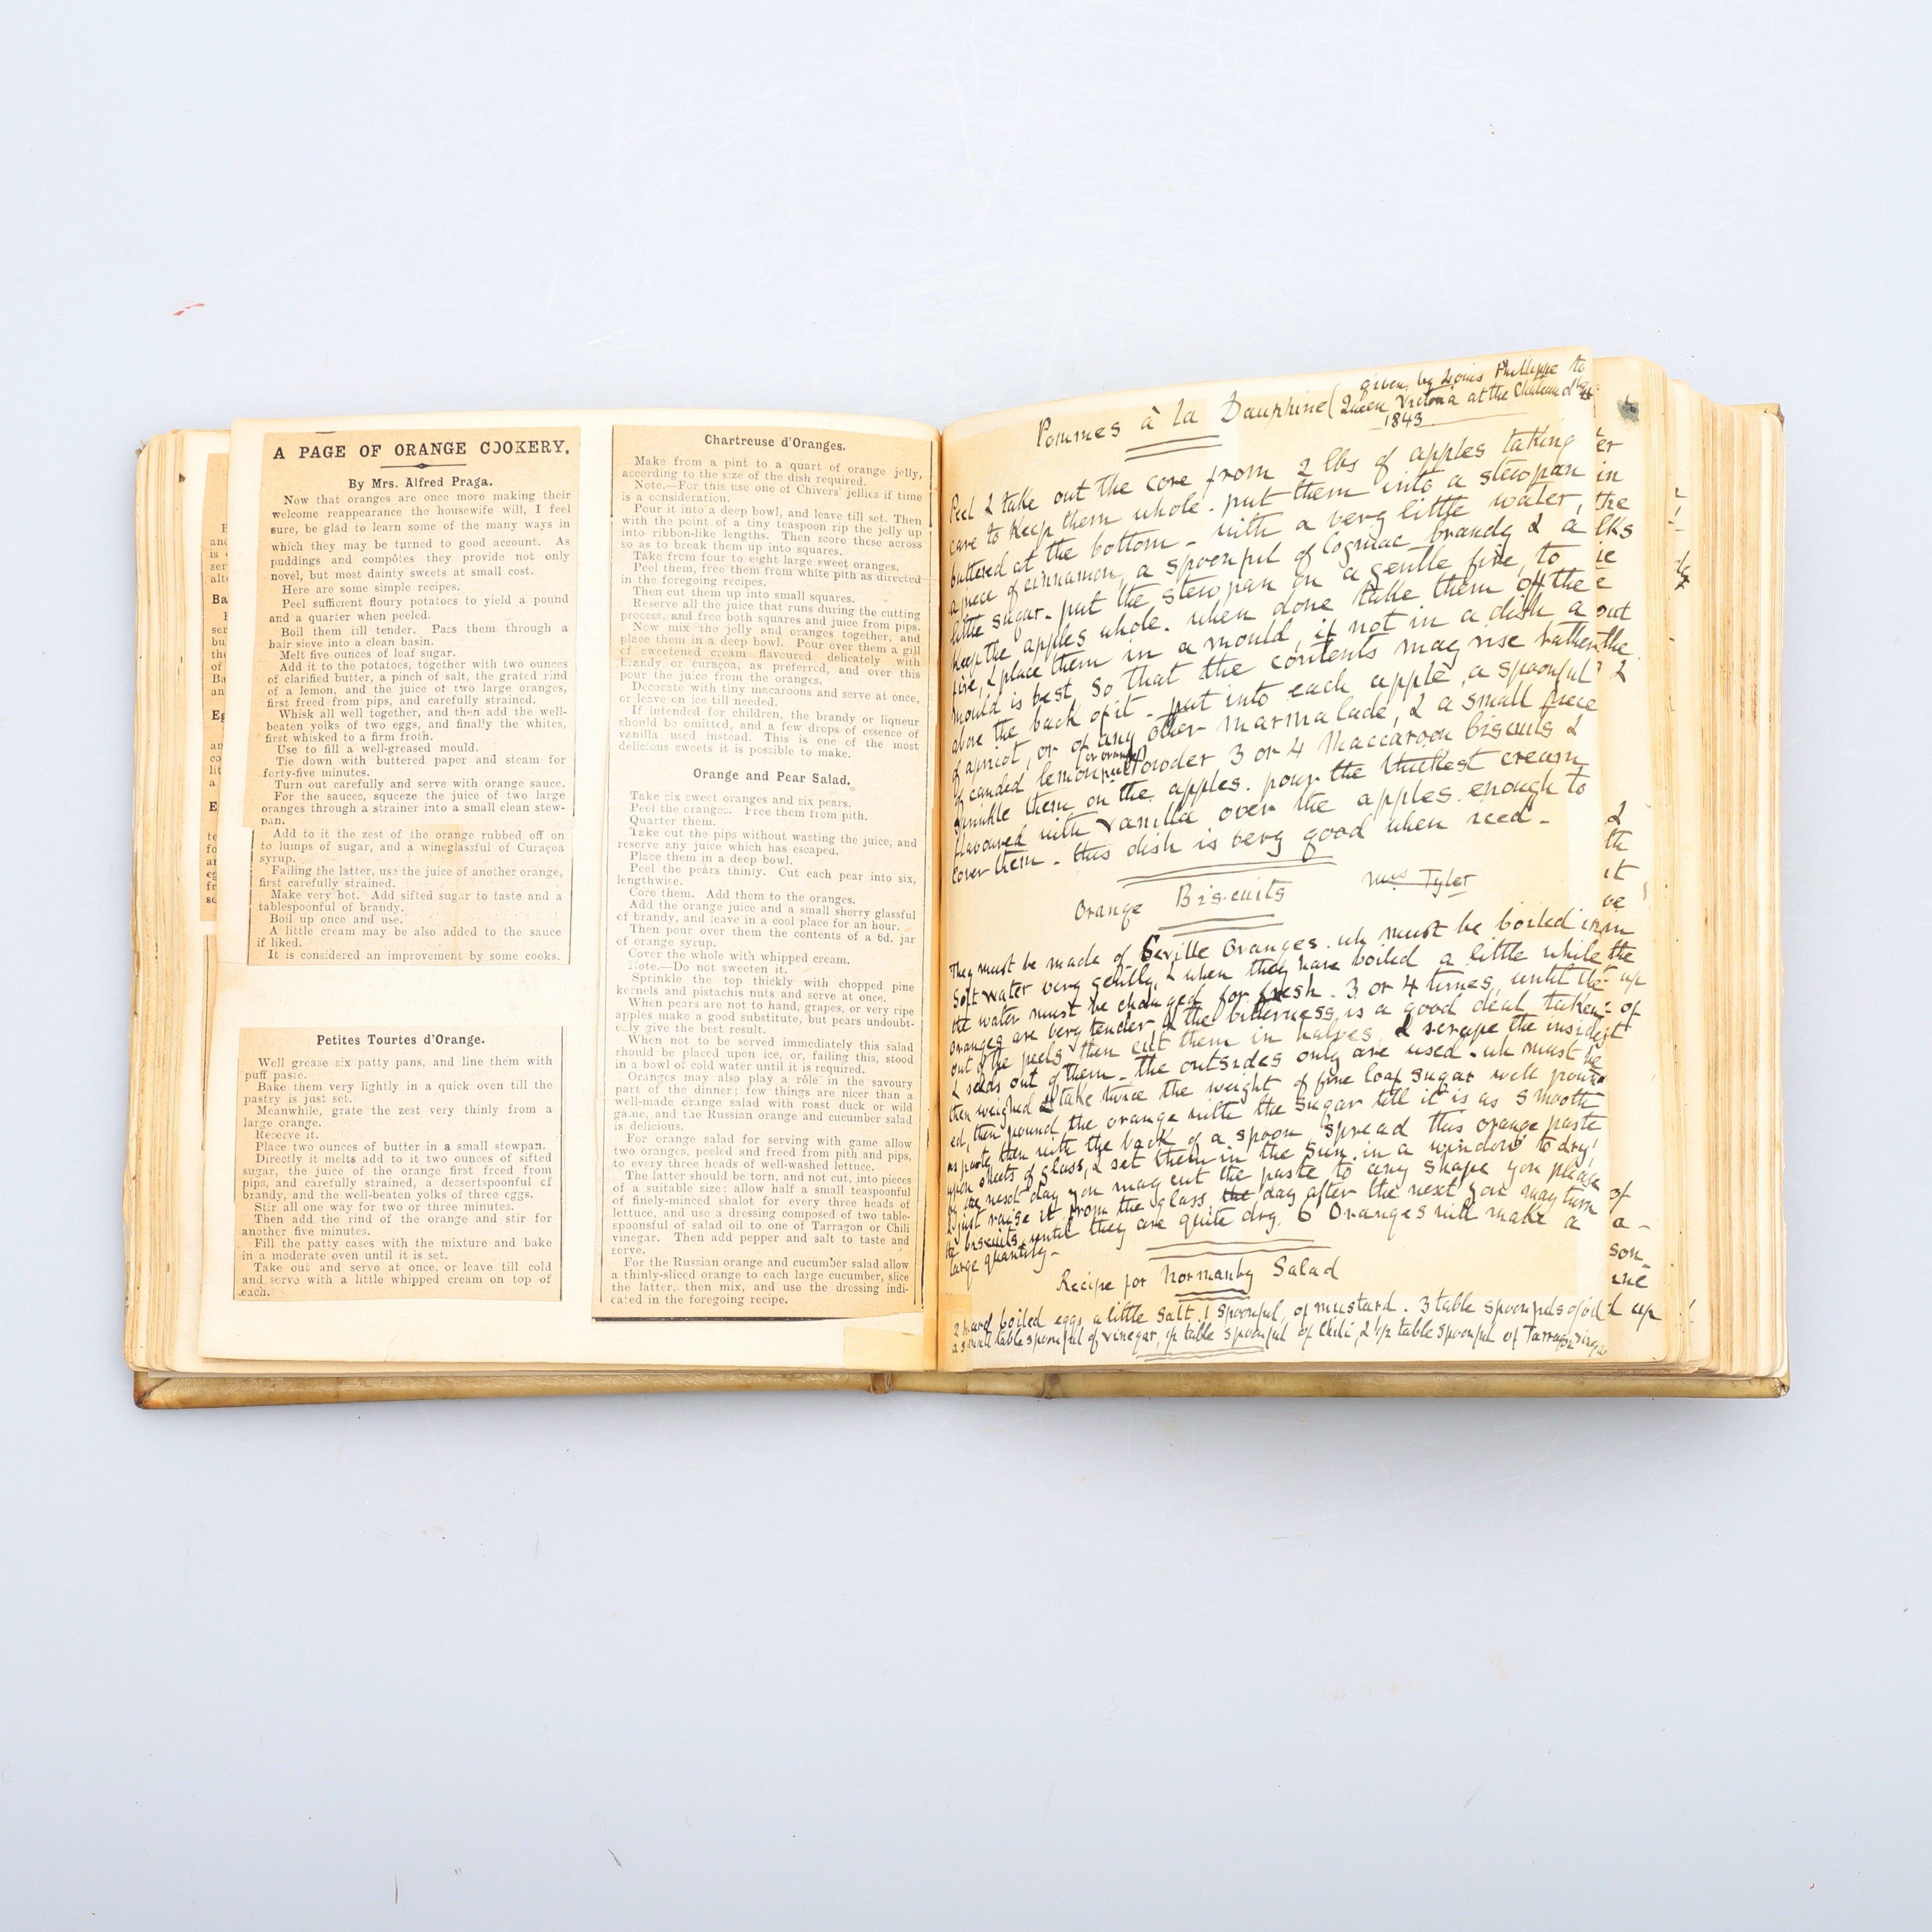 A PAGE OF ORANGE COOKERY.
By Mrs. Alfred Praga.
Now that oranges are once more making their
welcome reappearance the housewife will, I feel
sure, be glad to learn some of the many ways in
which they may be turned to good account. As
puddings and compôtes they provide not only
novel, but most dainty sweets at small cost.
Here are some simple recipes.
Peel sufficient floury potatoes to yield a pound
and a quarter when peeled.
Boil them till tender. Pass them through a
hair sieve into a clean basin.
Melt five ounces of loaf sugar.
Add it to the potatoes, together with two ounces
of clarified butter, a pinch of salt, the grated rind
of a lemon, and the juice of two large oranges,
first freed from pips, and carefully strained.
Whisk all well together, and then add the well-
beaten yolks of two eggs, and finally the whites,
first whisked to a firm froth.
Use to fill a well-greased mould.
Tie down with buttered paper and steam for
forty-five minutes.
Turn out carefully and serve with orange sauce.
For the sauces, squeeze the juice of two large
oranges through a strainer into a small clean stew-
pan.
Add to it the zest of the orange rubbed off on
to lumps of sugar, and a wineglassful of Curaçoa
syrup.
Failing the latter, use the juice of another orange,
first carefully strained.
Make very hot. Add sifted sugar to taste and a
tablespoonful of brandy.
Boil up once and use.
A little cream may be also added to the sauce
if liked.
It is considered an improvement by some cooks.
Petites Tourtes d'Orange.
Well grease six patty pans, and line them with
puff paste.
Bake them very lightly in a quick oven till the
pastry is just set.
Meanwhile, grate the zest very thinly from a
large orange.
Reserve it.
Place two ounces of butter in a small stewpan.
Directly it melts add to it two ounces of sifted
sugar, the juice of the orange first freed from
pips, and carefully strained, a dessertspoonful of
brandy, and the well-beaten yolks of three eggs.
Stir all one way for two or three minutes.
Then add the rind of the orange and stir for
another five minutes.
Fill the patty cases with the mixture and bake
in a moderate oven until it is set.
Take out and serve at once, or leave till cold
and servo with a little whipped cream on top of
each.
Chartreuse d'Oranges.
Make from a pint to a quart of orange jelly,
according to the size of the dish required.
Note.—For this use one of Chivers' jellies if time
is a consideration.
Pour it into a deep bowl, and leave till set. Then
with the point of a tiny teaspoon rip the jelly up
into ribbon-like lengths. Then score these across
so as to break them up into squares.
Take from four to eight large sweet oranges.
Peel them, free them from white pith as directed
in the foregoing recipes.
Then cut them up into small squares.
Reserve all the juice that runs during the cutting
process, and free both squares and juice from pips.
Now mix the jelly and oranges together, and
place them in a deep bowl. Pour over them a gill
of sweetened cream flavoured delicately with
brandy or curaçoa, as preferred, and over this
pour the juice from the oranges.
Decorate with tiny macaroons and serve at once,
or leave on ice till needed.
If intended for children, the brandy or liqueur
should be omitted, and a few drops of essence of
vanilla used instead. This is one of the most
delicious sweets it is possible to make.
Orange and Pear Salad.
Take six sweet oranges and six pears.
Peel the oranges. Free them from pith.
Quarter them.
Take out the pips without wasting the juice, and
reserve any juice which has escaped.
Place them in a deep bowl.
Peel the pears thinly. Cut each pear into six,
lengthwise.
Core them. Add them to the oranges.
Add the orange juice and a small sherry glassful
of brandy, and leave in a cool place for an hour.
Then pour over them the contents of a 6d. jar
of orange syrup.
Cover the whole with whipped cream.
Note.—Do not sweeten it.
Sprinkle the top thickly with chopped pine
kernels and pistachis nuts and serve at once.
When pears are not to hand, grapes, or very ripe
apples make a good substitute, but pears undoubt-
edly give the best result.
When not to be served immediately this salad
should be placed upon ice, or, failing this, stood
in a bowl of cold water until it is required.
Oranges may also play a rôle in the savoury
part of the dinner; few things are nicer than a
well-made orange salad with roast duck or wild
game, and the Russian orange and cucumber salad
is delicious.
For orange salad for serving with game allow
two oranges, peeled and freed from pith and pips,
to every three heads of well-washed lettuce.
The latter should be torn, and not cut, into pieces
of a suitable size; allow half a small teaspoonful
of finely-minced shalot for every three heads of
lettuce, and use a dressing composed of two table-
spoonsful of salad oil to one of Tarragon or Chili
vinegar. Then add pepper and salt to taste and
serve.
For the Russian orange and cucumber salad allow
a thinly-sliced orange to each large cucumber, slice
the latter, then mix, and use the dressing indi-
cated in the foregoing recipe.
Pommes à la Dauphine (given by Louis Phillippe to
Queen Victoria at the Chateau d'Eu
1843
Peel & take out the core from 2 lbs of apples taking
care to keep them whole. put them into a stewpan
buttered at the bottom - with a very little water,
a piece of cinnamon, a spoonful of Cogniac brandy & a
little sugar. put the stewpan on a gentle fire, to
keep the apples whole. when done take them off the
fire, & place them in a mould, if not in a dish a
mould is best, so that the contents may rise rather
above the back of it - put into each apple, a spoonful
of apricot, or of any other marmalade, & a small piece
of candied lemon (or orange) peel Powder 3 or 4 Maccaroon biscuits &
sprinkle them on the apples. pour the thickest cream
flavoured with vanilla over the apples enough to
cover them - this dish is very good when iced -
Orange Biscuits Mrs Tyler
They must be made of Seville Oranges. wh must be boiled in
Soft water very gently, & when they have boiled a little while
the water must be changed for fresh. 3 or 4 times, until the
oranges are very tender & the bitterness is a good deal taken
out of the peels then cut them in halves, & scrape the inside
& seeds out of them - the outsides only are used - wh must be
then weighed & take twice the weight of fine loaf sugar well pound
ed, then pound the orange with the sugar till it is as smooth
as paste, then with the back of a spoon spread this orange paste
upon sheets of glass, & set them in the sun, in a window to dry,
by the next day you may cut the paste to any shape you please
& just raise it from the glass, the day after the next you may turn
the biscuits, until they are quite dry. 6 Oranges will make a
large quantity -
Recipe for Normanby Salad
2 hard boiled eggs a little salt. 1 spoonful, of mustard. 3 table spoonfuls of oil
a small table spoonful of vinegar, ½ table spoonful of Chili, & ½ table spoonful of Tarragon vinegar